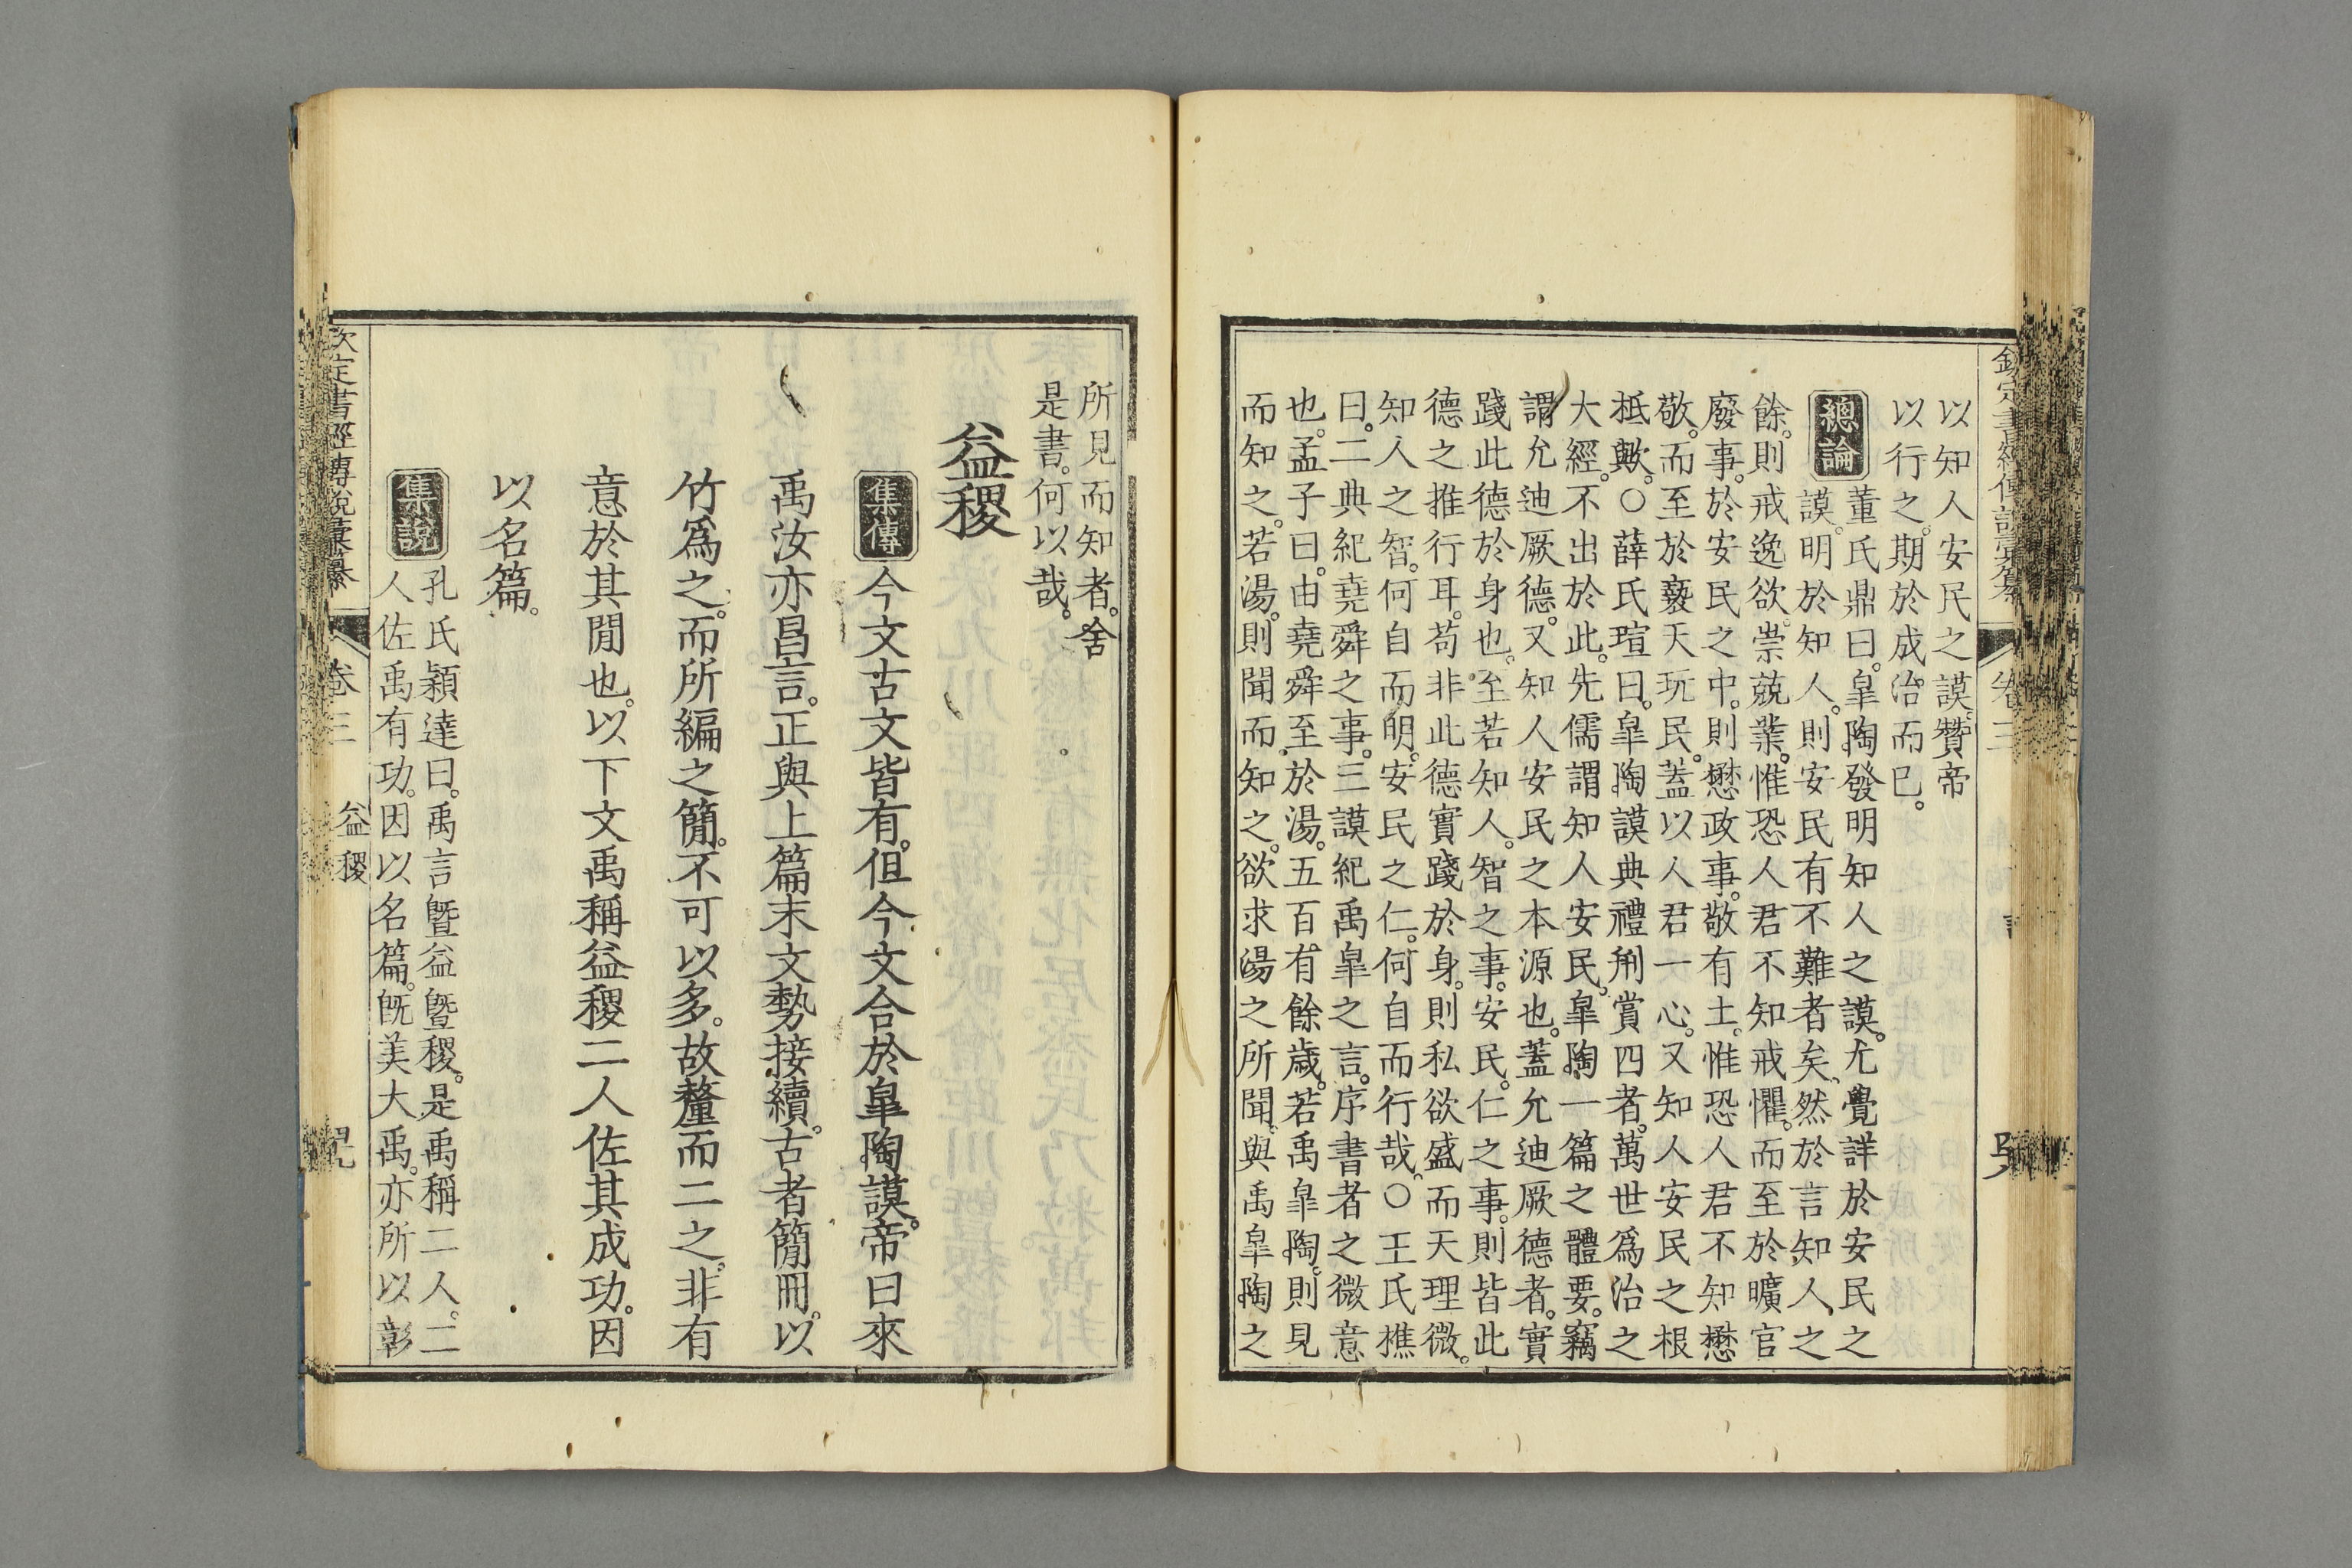 以知人安民之謨。贊帝
以行之。期於成治而已。
總論
董氏鼎曰。皐陶發明知人之謨。尤覺詳於安民之
謨。明於知人。則安民有不難者矣。然於言知人之
餘。則戒逸欲。崇兢業。惟恐人君不知戒懼。而至於曠官
廢事。於安民之中。則懋政事。敬有土。惟恐人君不知懋
敬。而至於䙝天玩民。蓋以人君一心。又知人安民之根
柢歟。○薛氏瑄曰。皐陶謨典禮𠛬賞四者。萬世爲治之
大經。不出於此。先儒謂知人安民。皐陶一篇之體要。竊
謂允迪厥德。又知人安民之本源也。蓋允迪厥德者。實
踐此德於身也。至若知人。智之事。安民。仁之事。則皆此
德之推行耳。苟非此德實踐於身。則私欲盛而天理微。
知人之智。何自而明。安民之仁。何自而行哉。○王氏樵
曰。二典紀堯舜之事。三謨紀禹皐之言。序書者之微意
也。孟子曰。由堯舜至於湯。五百有餘歲。若禹皐陶。則見
而知之。若湯。則聞而知之。欲求湯之所聞。與禹皐陶之
所見而知者。舍
是書。何以哉。
益稷
集傳
今文古文皆有。但今文合於皐陶謨。帝曰來
禹汝亦昌言。正與上篇末文勢接續。古者簡冊。以
竹爲之。而所編之簡。不可以多。故釐而二之。非有
意於其閒也。以下文禹稱益稷二人佐其成功。因
以名篇。
集說
孔氏穎達曰。禹言曁益曁稷。是禹稱二人。二
人佐禹有功。因以名篇。旣美大禹。亦所以彰
欽定書經傳說彙纂
卷三
益稷